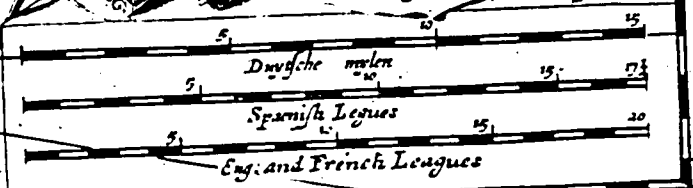 5 10 15
Duytsche mylen
5 10 15 17½
Spanish Legues
5 15 20
Eng: and French Leagues